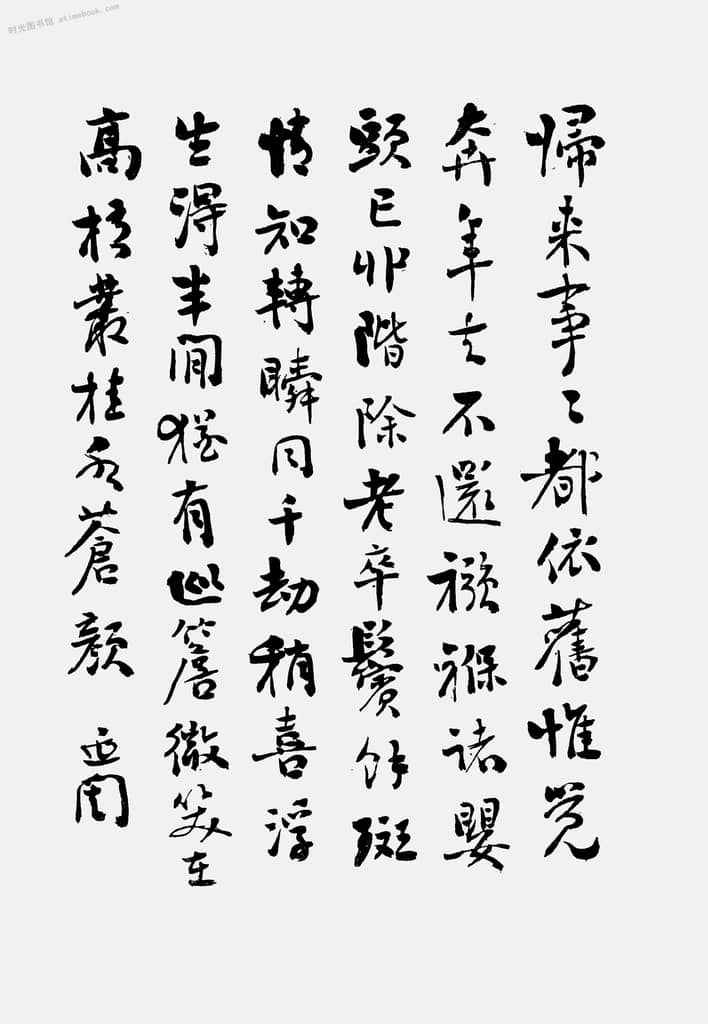 时光图书馆 atimebook.com
帰来事〻都依舊惟覚
奔年去不還襁褓諸嬰
頭已丱階除老卒鬢餘斑
情知轉瞬同千劫稍喜浮
生得半閒猶有巡簷微笑在
高叢桂蒼顏